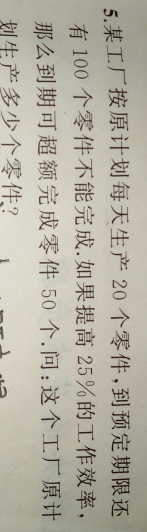 5.某工厂按原计划每天生产 20 个零件,到预定期限还
有 100 个零件不能完成.如果提高 25%的工作效率,
那么到期可超额完成零件 50 个.问:这个工厂原计
划生产多少个零件?